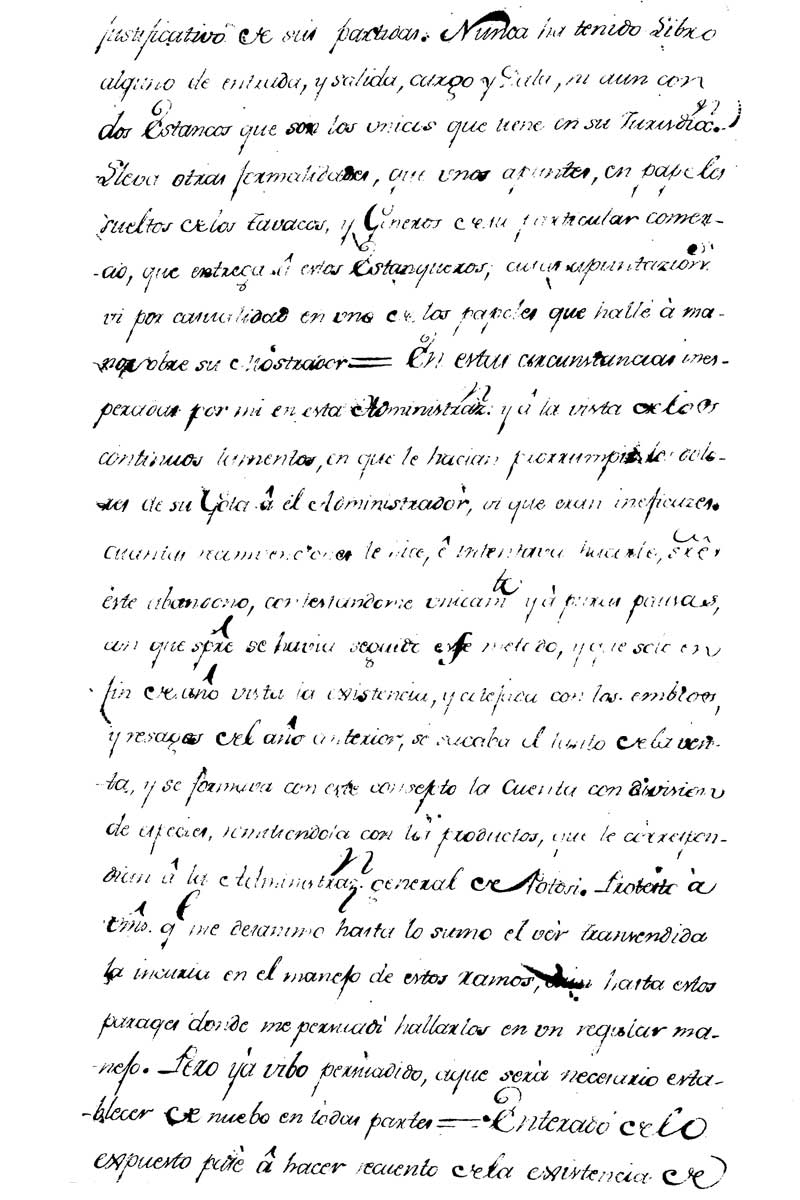 justificativo de sus partidas. Nunca ha tenido Libro
alguno de entrada, y salida, cargo y Data, ni aun con
dos Estancos que son los unicos que tiene en su Jurisdicc.n
Lleva otras formalidades, que unos apuntes, en papeles
sueltos de los tavacos, y Generos de su particular comer-
-cio, que entrega â estos Estanqueros; cuias apuntaziones
vi por casualidad en uno de los papeles que hallè à ma-
no sobre su Mostrador == En estas circunstancias ines-
peradas por mi en esta Administraz.n y â la vista de los
continuos lamentos, en que le hacian prorrumpir los dolo-
res de su Gota â el Administradòr, vi que eran ineficazes
cuantas reconvenciones le hice, ê intentava hacerle, sre
este abandono, contestandome unicam.te y à puras pausas,
aun que spre se havia seguido este metodo, y que solo en
fin de año vista la existencia, y cotejada con los embios,
y resagos del año anterior, se sacaba el tanto de la ven-
-ta, y se formava con este consepto la Cuenta con divicion
de especies, remitiendola con los productos, que le correspon-
dian â la Administraz.n general de Potosi. Protesto à
Vms. q.e me desanimo hasta lo sumo el vèr transendida
la incuria en el manejo de estos ramos, aun hasta estos
parages donde me persuadi hallarlos en un regular ma-
nejo. Pero yà vibo persuadido, aque serà necesario esta-
-blecer de nuebo en todas partes == Enterado de lo
expuesto pasè â hacer recuento de la existencia de